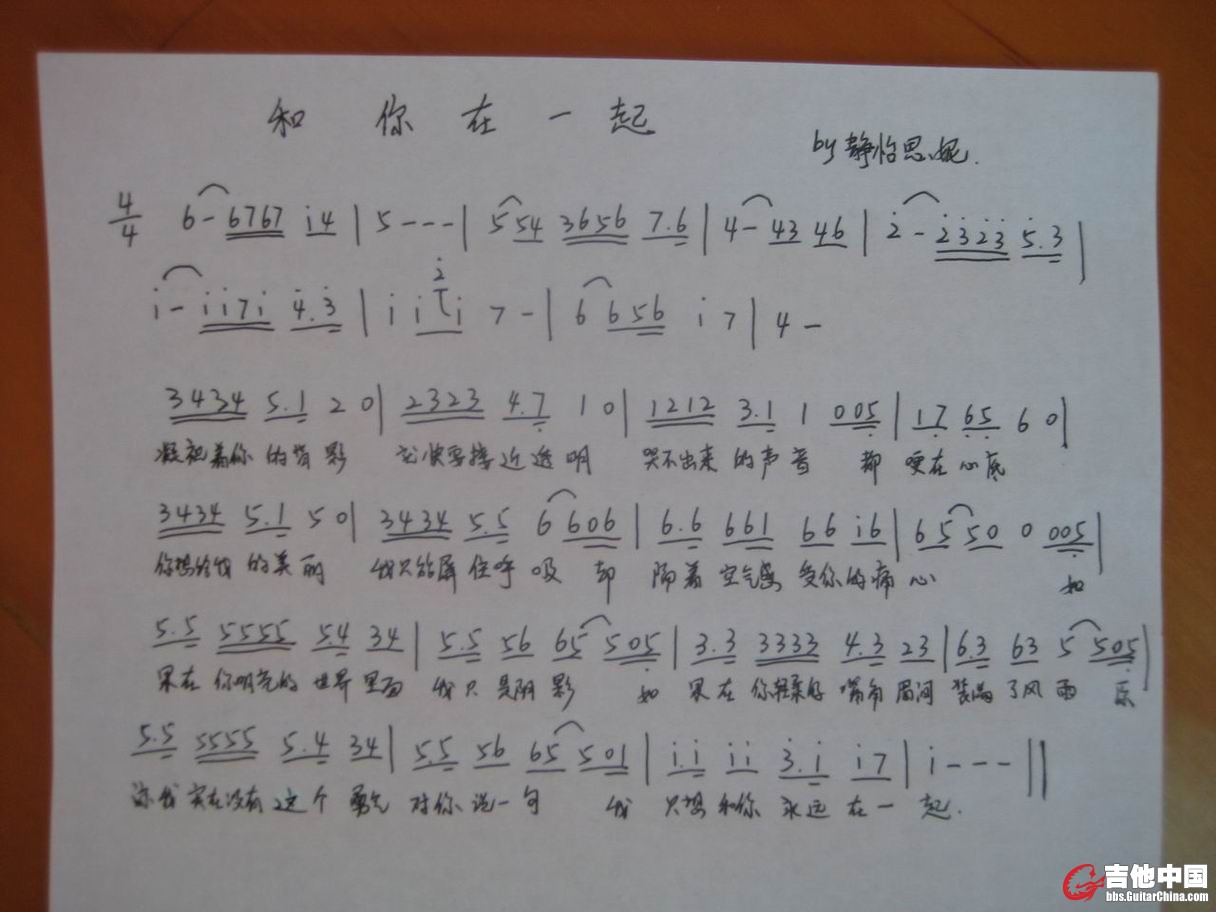 和你在一起
by 静怡思妮.
4/4 6 - 6767 i4 | 5 - - - | 5 54 3656 7.6 | 4 - 43 46 | 2 - 2323 5.3 |
i - ii7i 4.3 | i i 2 i 7 - | 6 656 i 7 | 4 -
3434 5.1 2 0 | 2323 4.7 1 0 | 1212 3.1 1 005 | 17 65 6 0 |
凝视着你的背影 它快要接近透明 哭不出来的声音 都哽在心底
3434 5.1 5 0 | 3434 5.5 6 606 | 6.6 661 66 i6 | 65 50 0 005 |
你想给我的美丽 我只能屏住呼吸 却隔着空气感受你的痛心 如
5.5 5555 54 34 | 5.5 56 65 505 | 3.3 3333 4.3 23 | 6.3 63 5 505 |
果在你明亮的世界里面 我只是阴影 如果在你轻柔的嘴角眉间 装满了风雨 原
5.5 5555 5.4 34 | 5.5 56 65 501 | i.i ii 3.i i7 | i - - - ||
谅我实在没有这个勇气 对你说一句 我只想和你永远在一起.
吉他中国
bbs.GuitarChina.com